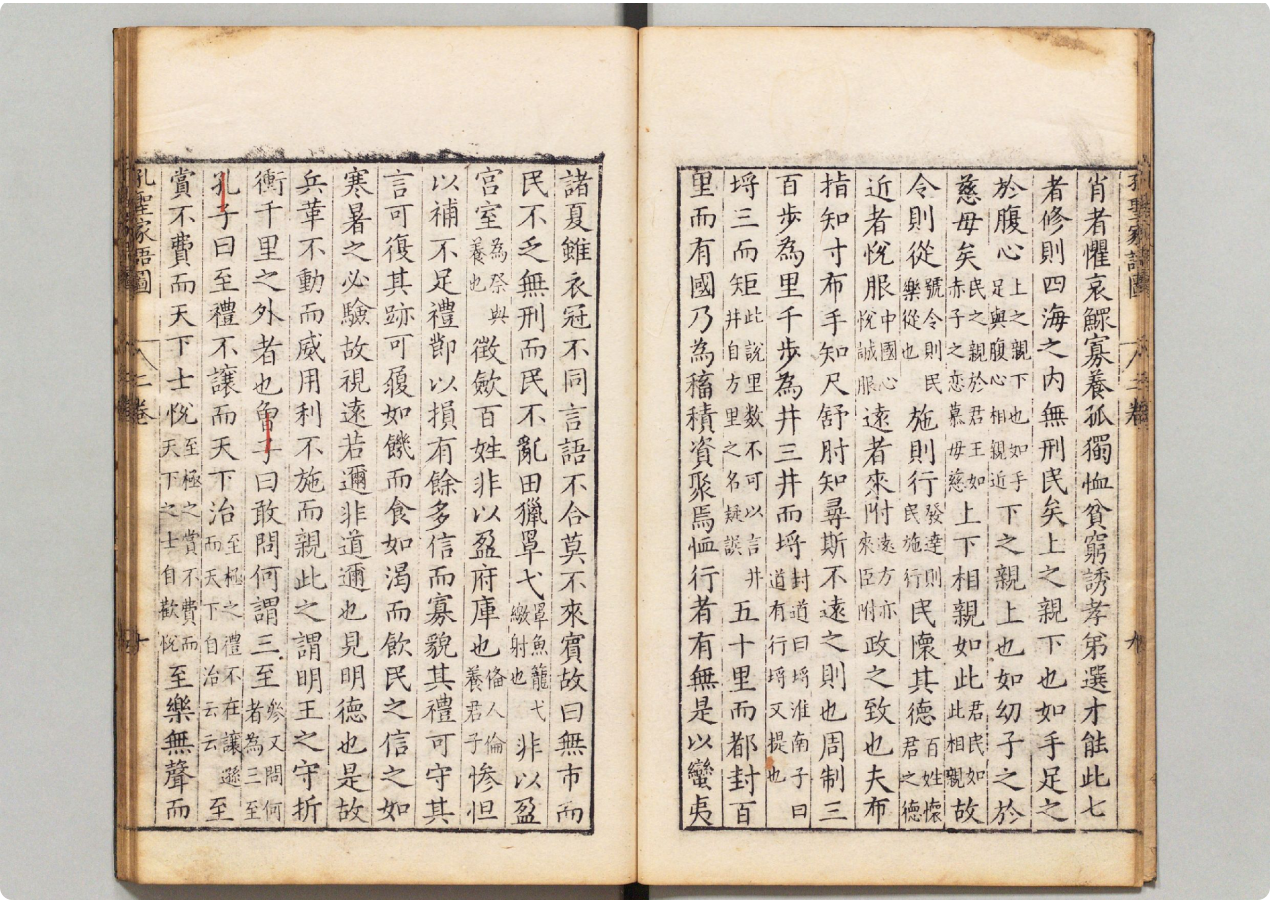 肖者懼哀鰥寡養孤獨恤貧窮誘孝弟選才能此七
者修則四海之内無刑民矣上之親下也如手足之
於腹心上之親下也如手足與腹心相親近下之親上也如幼子之於
慈母矣民之親於君王如赤子之恋慕母慈上下相親如此君民如此相親故
令則從號令則民樂從也施則行發達則民施行民懷其德百姓懷君之德
近者悅服中國心悅誠服遠者來附遠方亦來臣附政之致也夫布
指知寸布手知尺舒肘知尋斯不遠之則也周制三
百步為里千步為井三井而埒封道曰埒淮南子曰道有行埒又提也
埒三而矩此說里数不可以言井井自方里之名疑誤五十里而都封百
里而有國乃為稸積資聚焉恤行者有無是以蠻夷
諸夏雖衣冠不同言語不合莫不來賓故曰無市而
民不乏無刑而民不亂田獵罩弋罩魚籠弋繳射也非以盈
宮室為祭與養也徵歛百姓非以盈府庫也俻人倫養君子慘怛
以補不足禮節以損有餘多信而寡貌其禮可守其
言可復其跡可履如饑而食如渴而飲民之信之如
寒暑之必驗故視遠若邇非道邇也見明德也是故
兵革不動而威用利不施而親此之謂明王之守折
衝千里之外者也曾子曰敢問何謂三至參又問何者為三至
孔子曰至禮不讓而天下治至極之禮不在讓遜而天下自治云云至
賞不費而天下士悅至極之賞不費而天下之士自歡悅至樂無聲而
孔聖家語圖 二卷 十